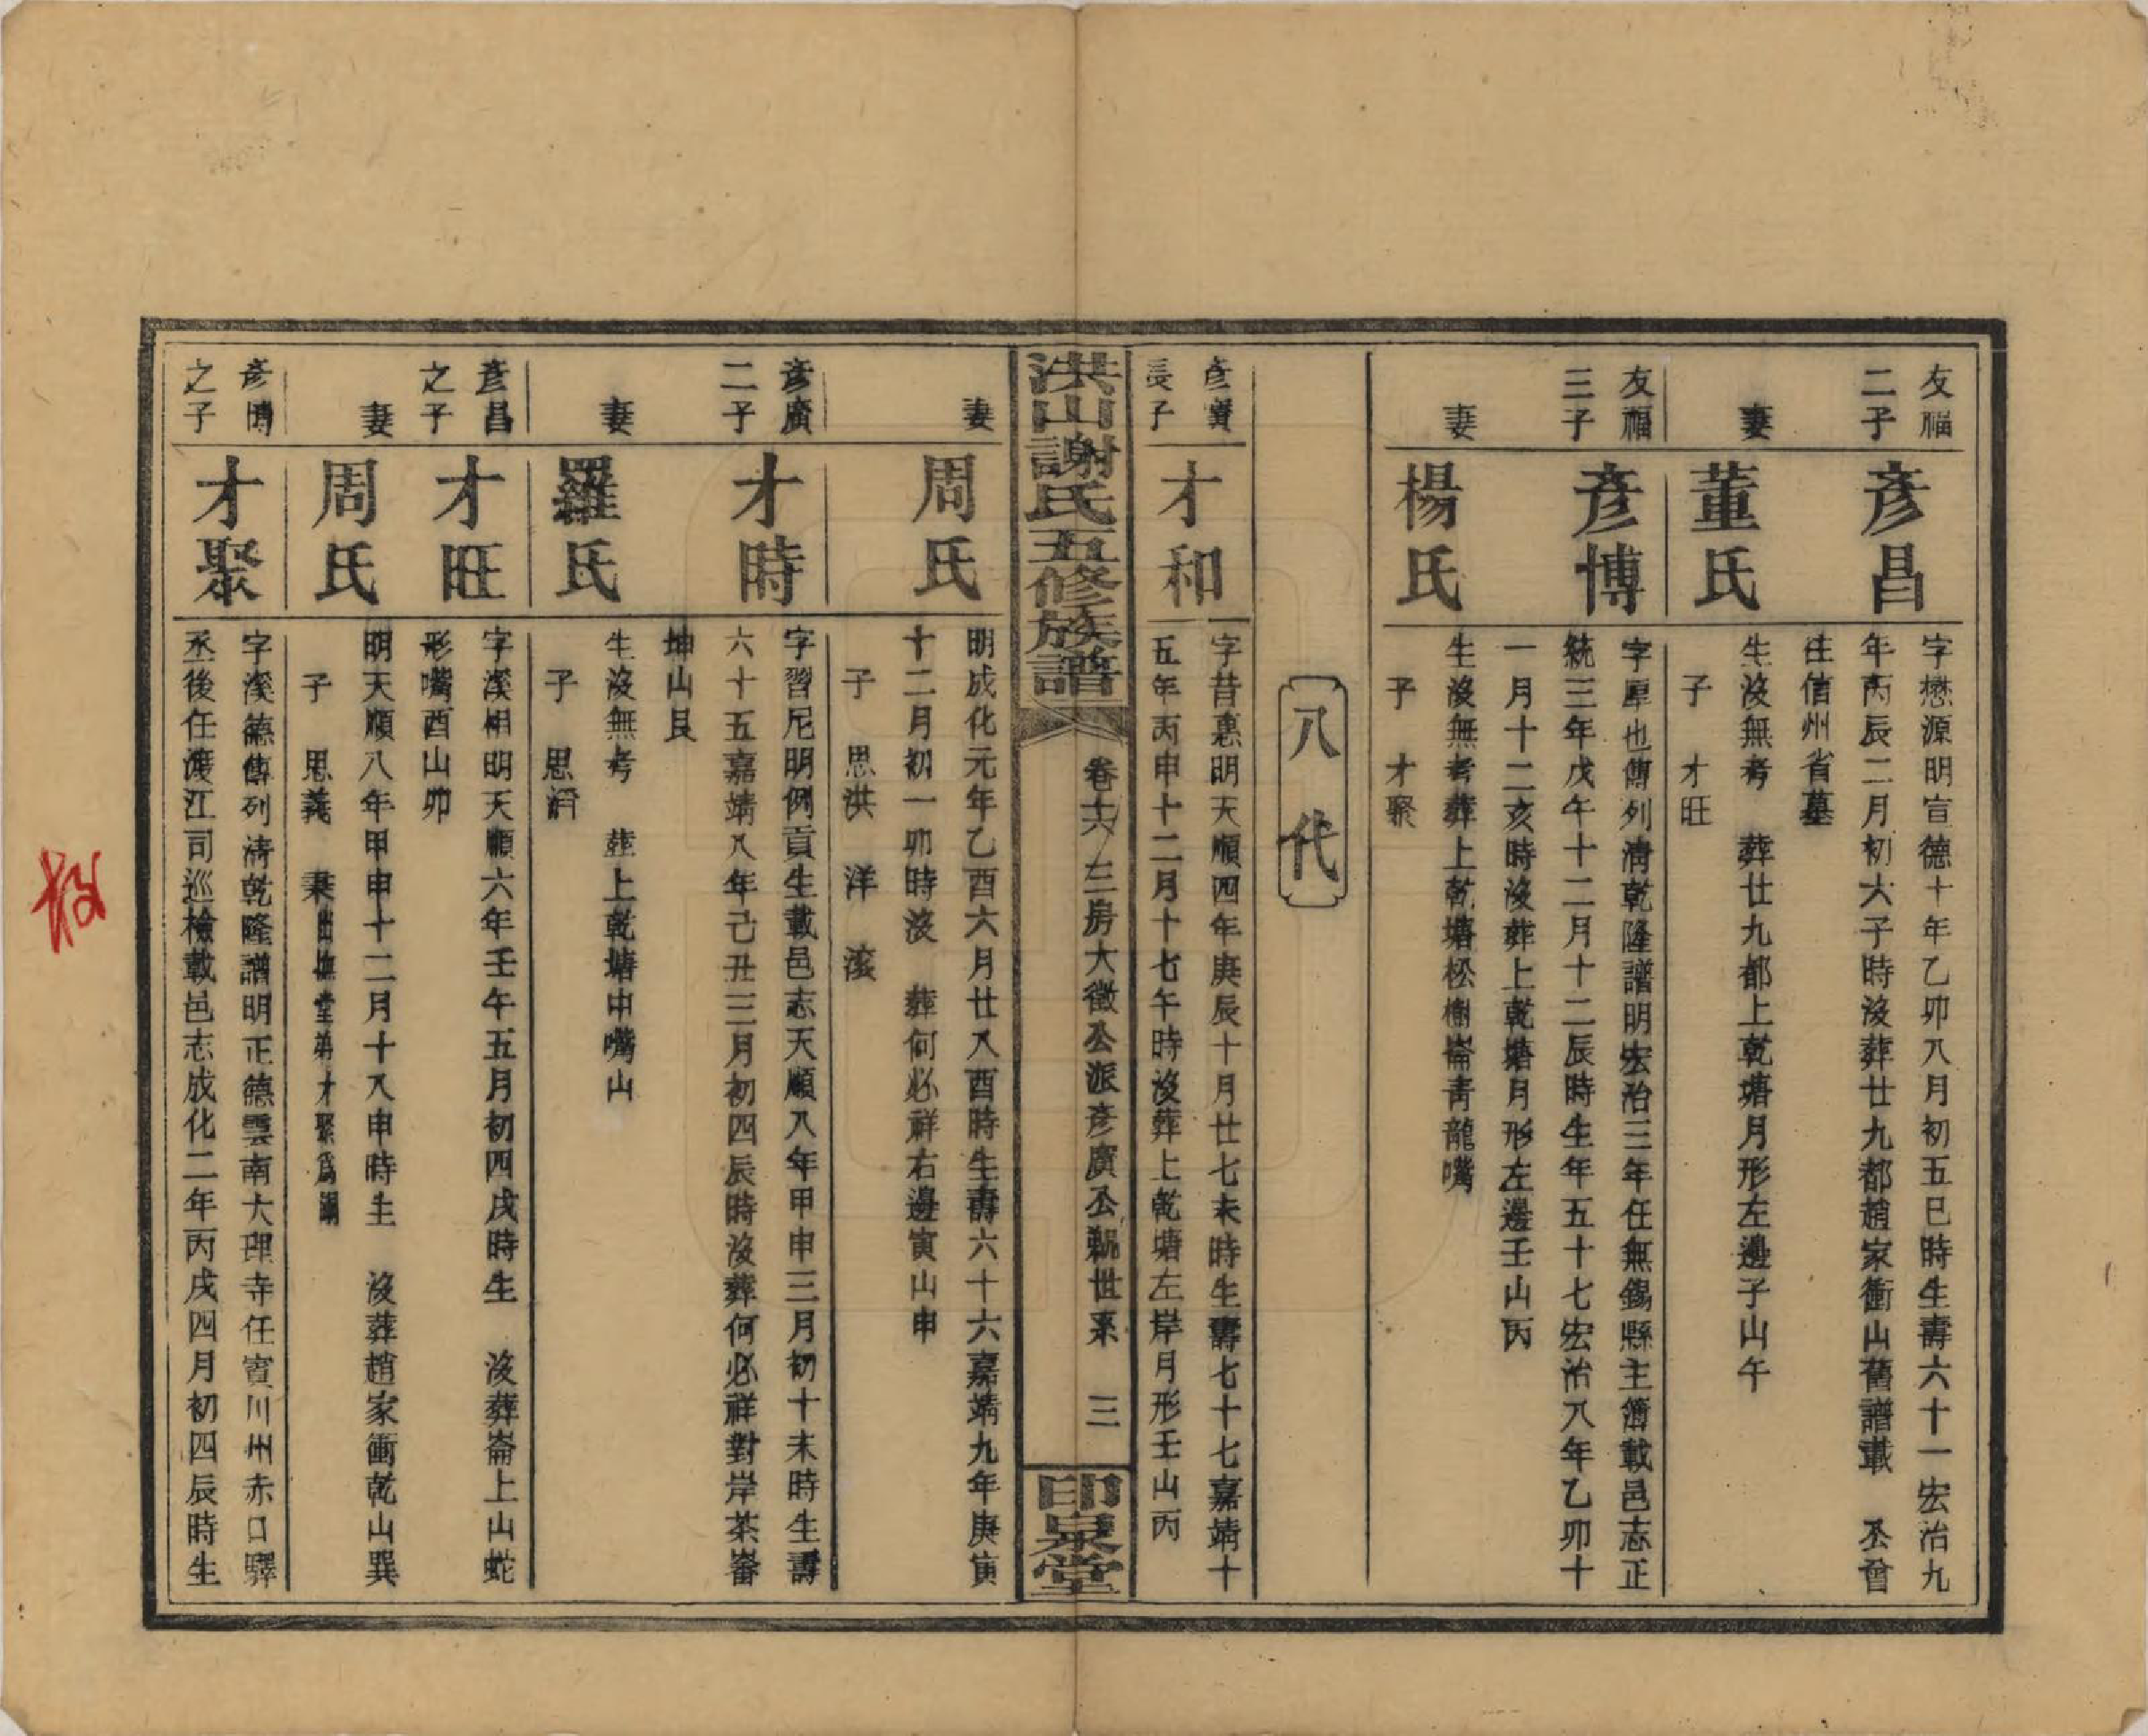 友福
二子
彥昌
字懋源明宣德十年乙卯八月初五巳時生壽六十一宏治九
年丙辰二月初六子時沒葬廿九都趙家衝山舊譜載 公曾
往信州省墓
妻
董氏
生沒無考 葬廿九都上乾塘月形左邊子山午
子 才旺
友福
三子
彥博
字厚也傳列淸乾隆譜明宏治三年任無錫縣主簿載邑志正
統三年戊午十二月十二辰時生年五十七宏治八年乙卯十
一月十二亥時沒葬上乾塘月形左邊壬山丙
妻
楊氏
生沒無考葬上乾塘松樹崙靑龍嘴
子 才聚
八代
彥廣
長子
才和
字昔惠明天順四年庚辰十月廿七未時生壽七十七嘉靖十
五年丙申十二月十七午時沒葬上乾塘左岸月形壬山丙
洪山謝氏五修族譜
卷十六 三房大徵公派彥廣公䚴世系 三
印泉堂
妻
周氏
明成化元年乙酉六月廿八酉時生壽六十六嘉靖九年庚寅
十二月初一卯時沒 葬何必祥右邊寅山申
子 思洪 洋 滾
彥廣
二子
才時
字習尼明例貢生載邑志天順八年甲申三月初十未時生壽
六十五嘉靖八年己丑三月初四辰時沒葬何必祥對岸茶崙
坤山艮
妻
羅氏
生沒無考 葬上乾塘中嘴山
子 思濟
彥昌
之子
才旺
字溪相明天順六年壬午五月初四戌時生 沒葬崙上山蛇
形嘴酉山卯
妻
周氏
明天順八年甲申十二月十八申時生 沒葬趙家衝乾山巽
子 思義 秉出撫堂弟才聚爲嗣
彥博
之子
才聚
字溪德傳列淸乾隆譜明正德雲南大理寺任賓川州赤口驛
丞後任渡江司巡檢載邑志成化二年丙戌四月初四辰時生